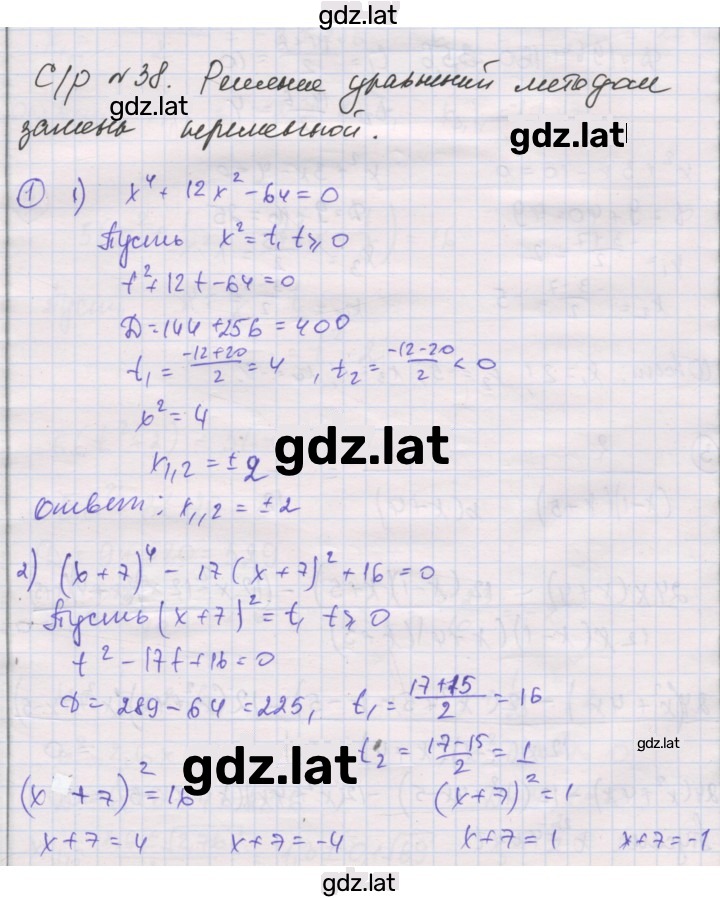 gdz.lat
С/р №38. Решение уравнений методом
gdz.lat
замены переменной.
gdz.lat
① 1) x⁴ + 12x² - 64 = 0
Пусть x² = t, t ≥ 0
t² + 12t - 64 = 0
D = 144 + 256 = 400
t₁ = (-12+20)/2 = 4 , t₂ = (-12-20)/2 < 0
x² = 4
gdz.lat
x₁,₂ = ± 2
Ответ: x₁,₂ = ± 2
2) (x + 7)⁴ - 17(x + 7)² + 16 = 0
Пусть (x + 7)² = t, t ≥ 0
t² - 17t + 16 = 0
D = 289 - 64 = 225, t₁ = (17+15)/2 = 16
t₂ = (17-15)/2 = 1
gdz.lat
gdz.lat
(x + 7)² = 16 (x + 7)² = 1
x + 7 = 4 x + 7 = -4 x + 7 = 1 x + 7 = -1
gdz.lat